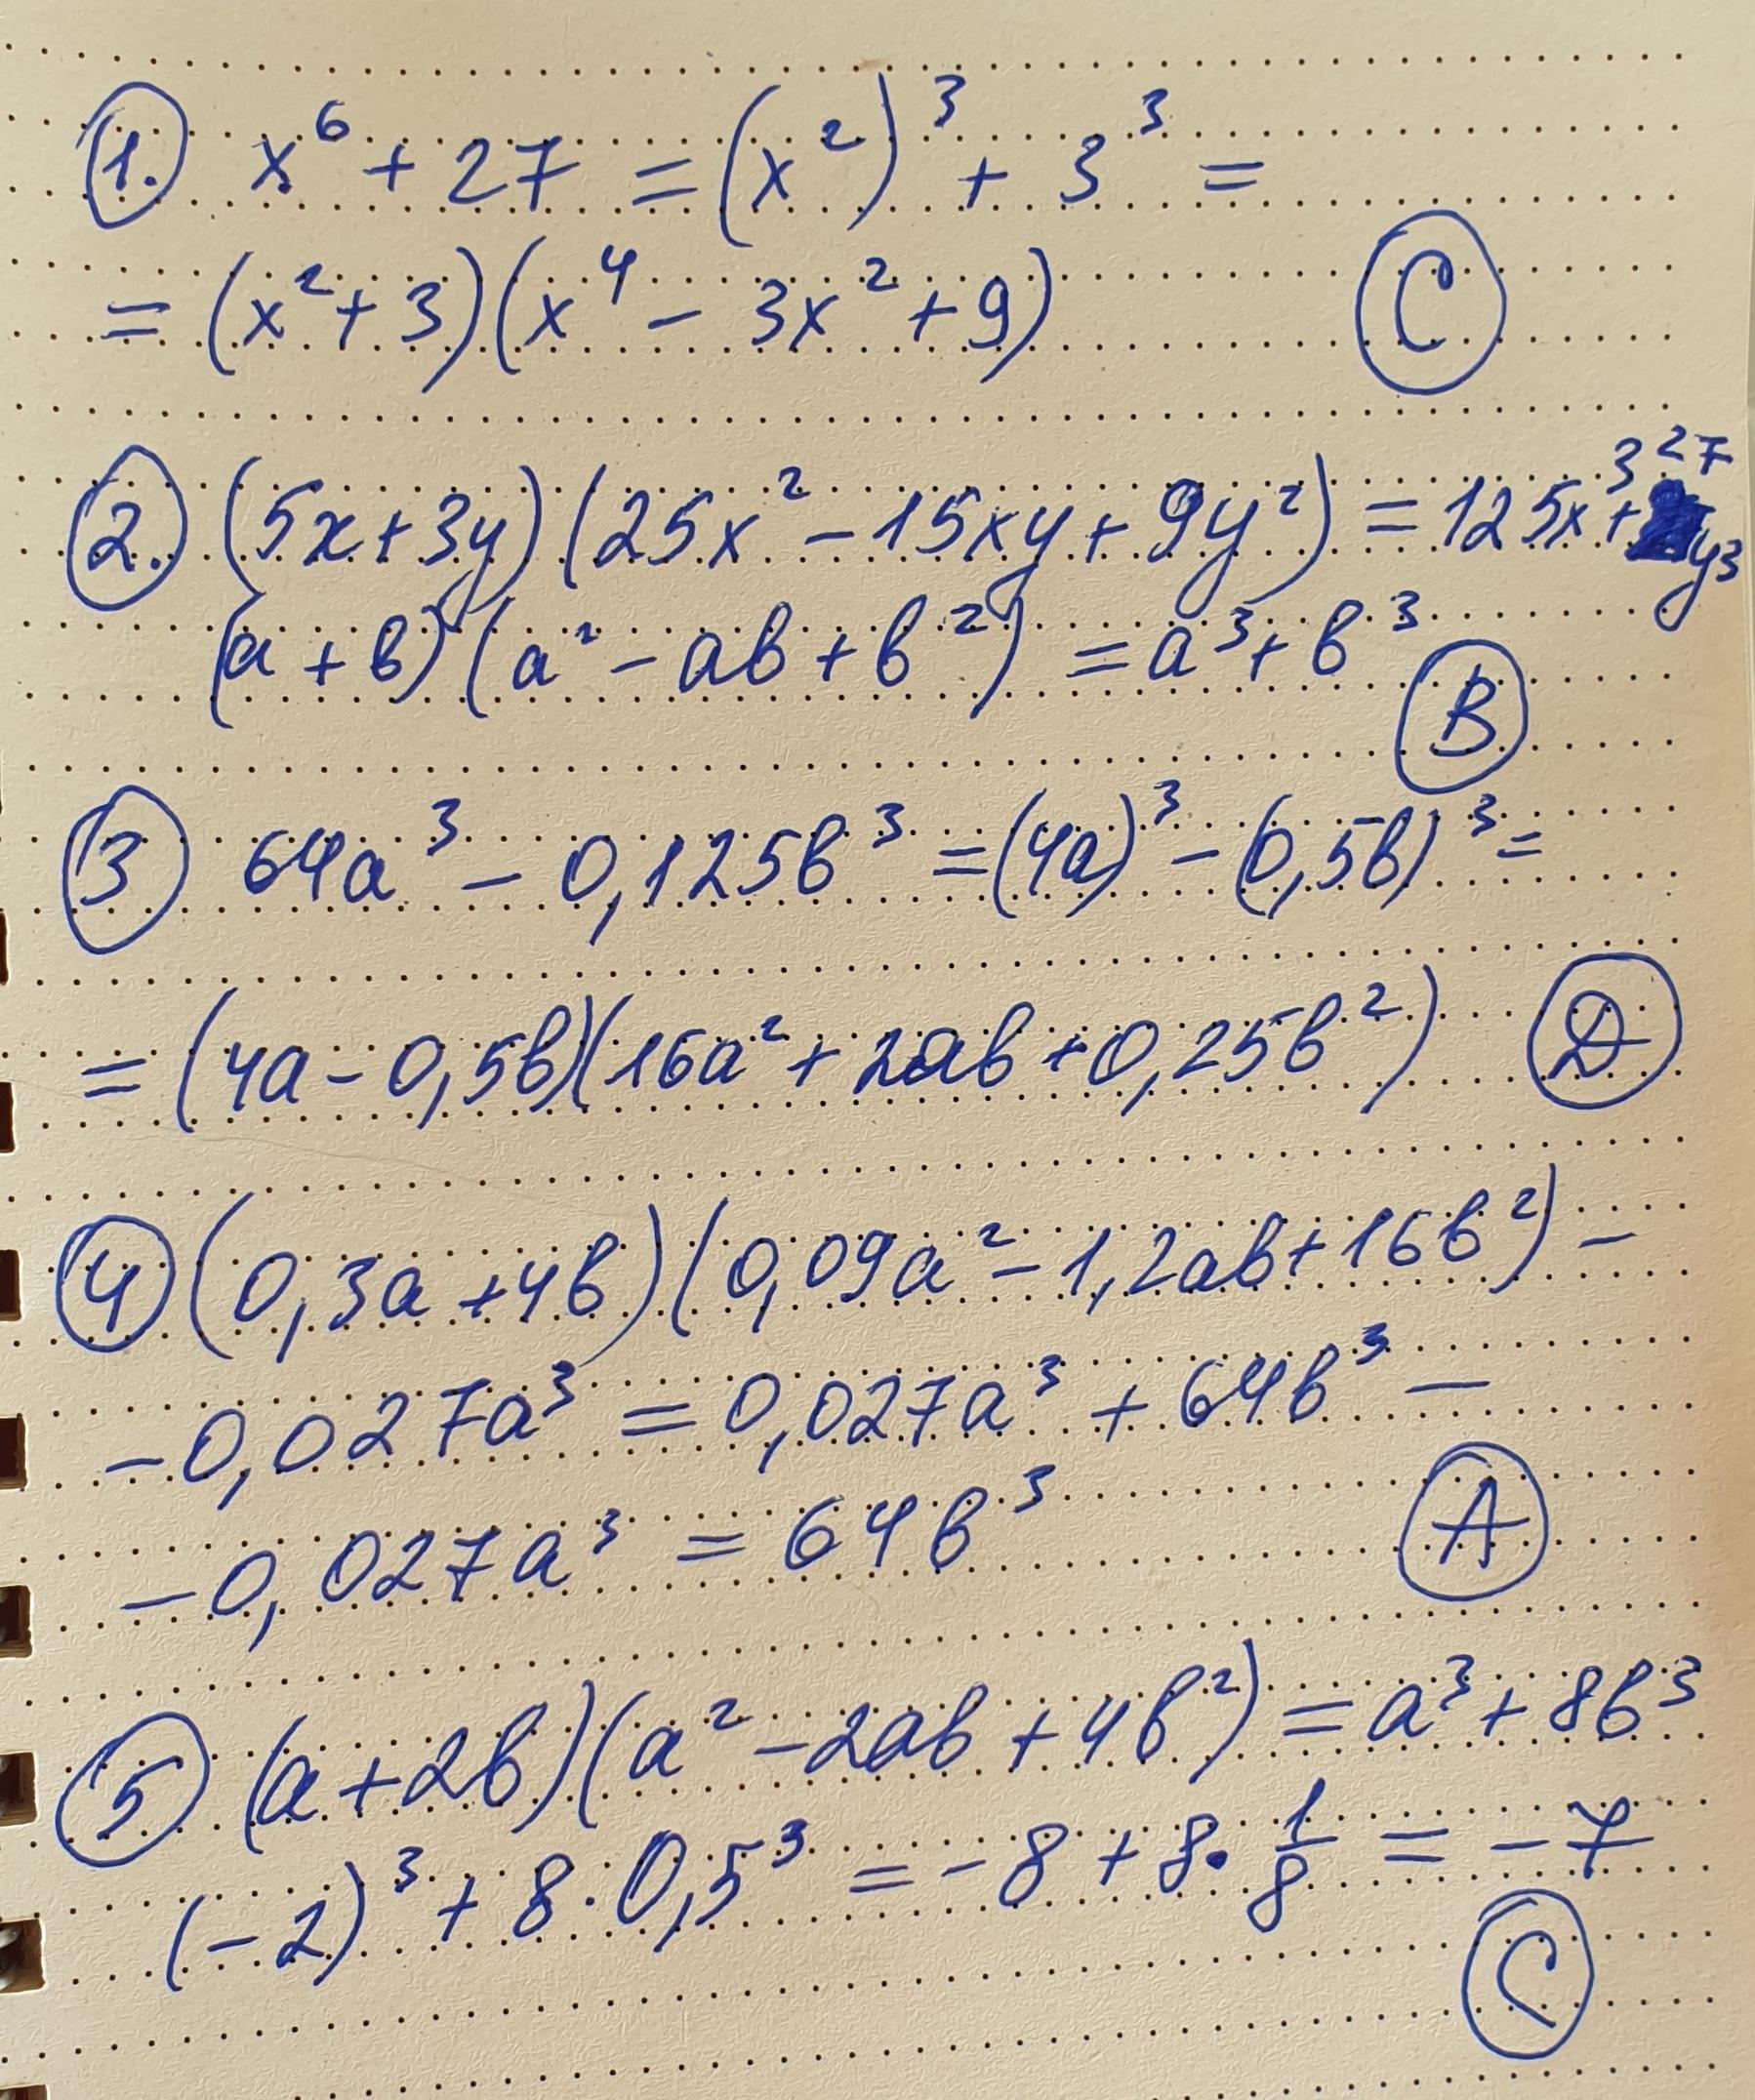 1. x⁶ + 27 = (x²)³ + 3³ =
= (x² + 3)(x⁴ − 3x² + 9)
C
2. (5x + 3y)(25x² − 15xy + 9y²) = 125x³ + 27y³
(a + b)(a² − ab + b²) = a³ + b³
B
3 64a³ − 0,125b³ = (4a)³ − (0,5b)³ =
= (4a − 0,5b)(16a² + 2ab + 0,25b²) D
4 (0,3a + 4b)(0,09a² − 1,2ab + 16b²) −
− 0,027a³ = 0,027a³ + 64b³ −
− 0,027a³ = 64b³ A
5 (a + 2b)(a² − 2ab + 4b²) = a³ + 8b³
(−2)³ + 8 · 0,5³ = −8 + 8 · 1/8 = −7
C